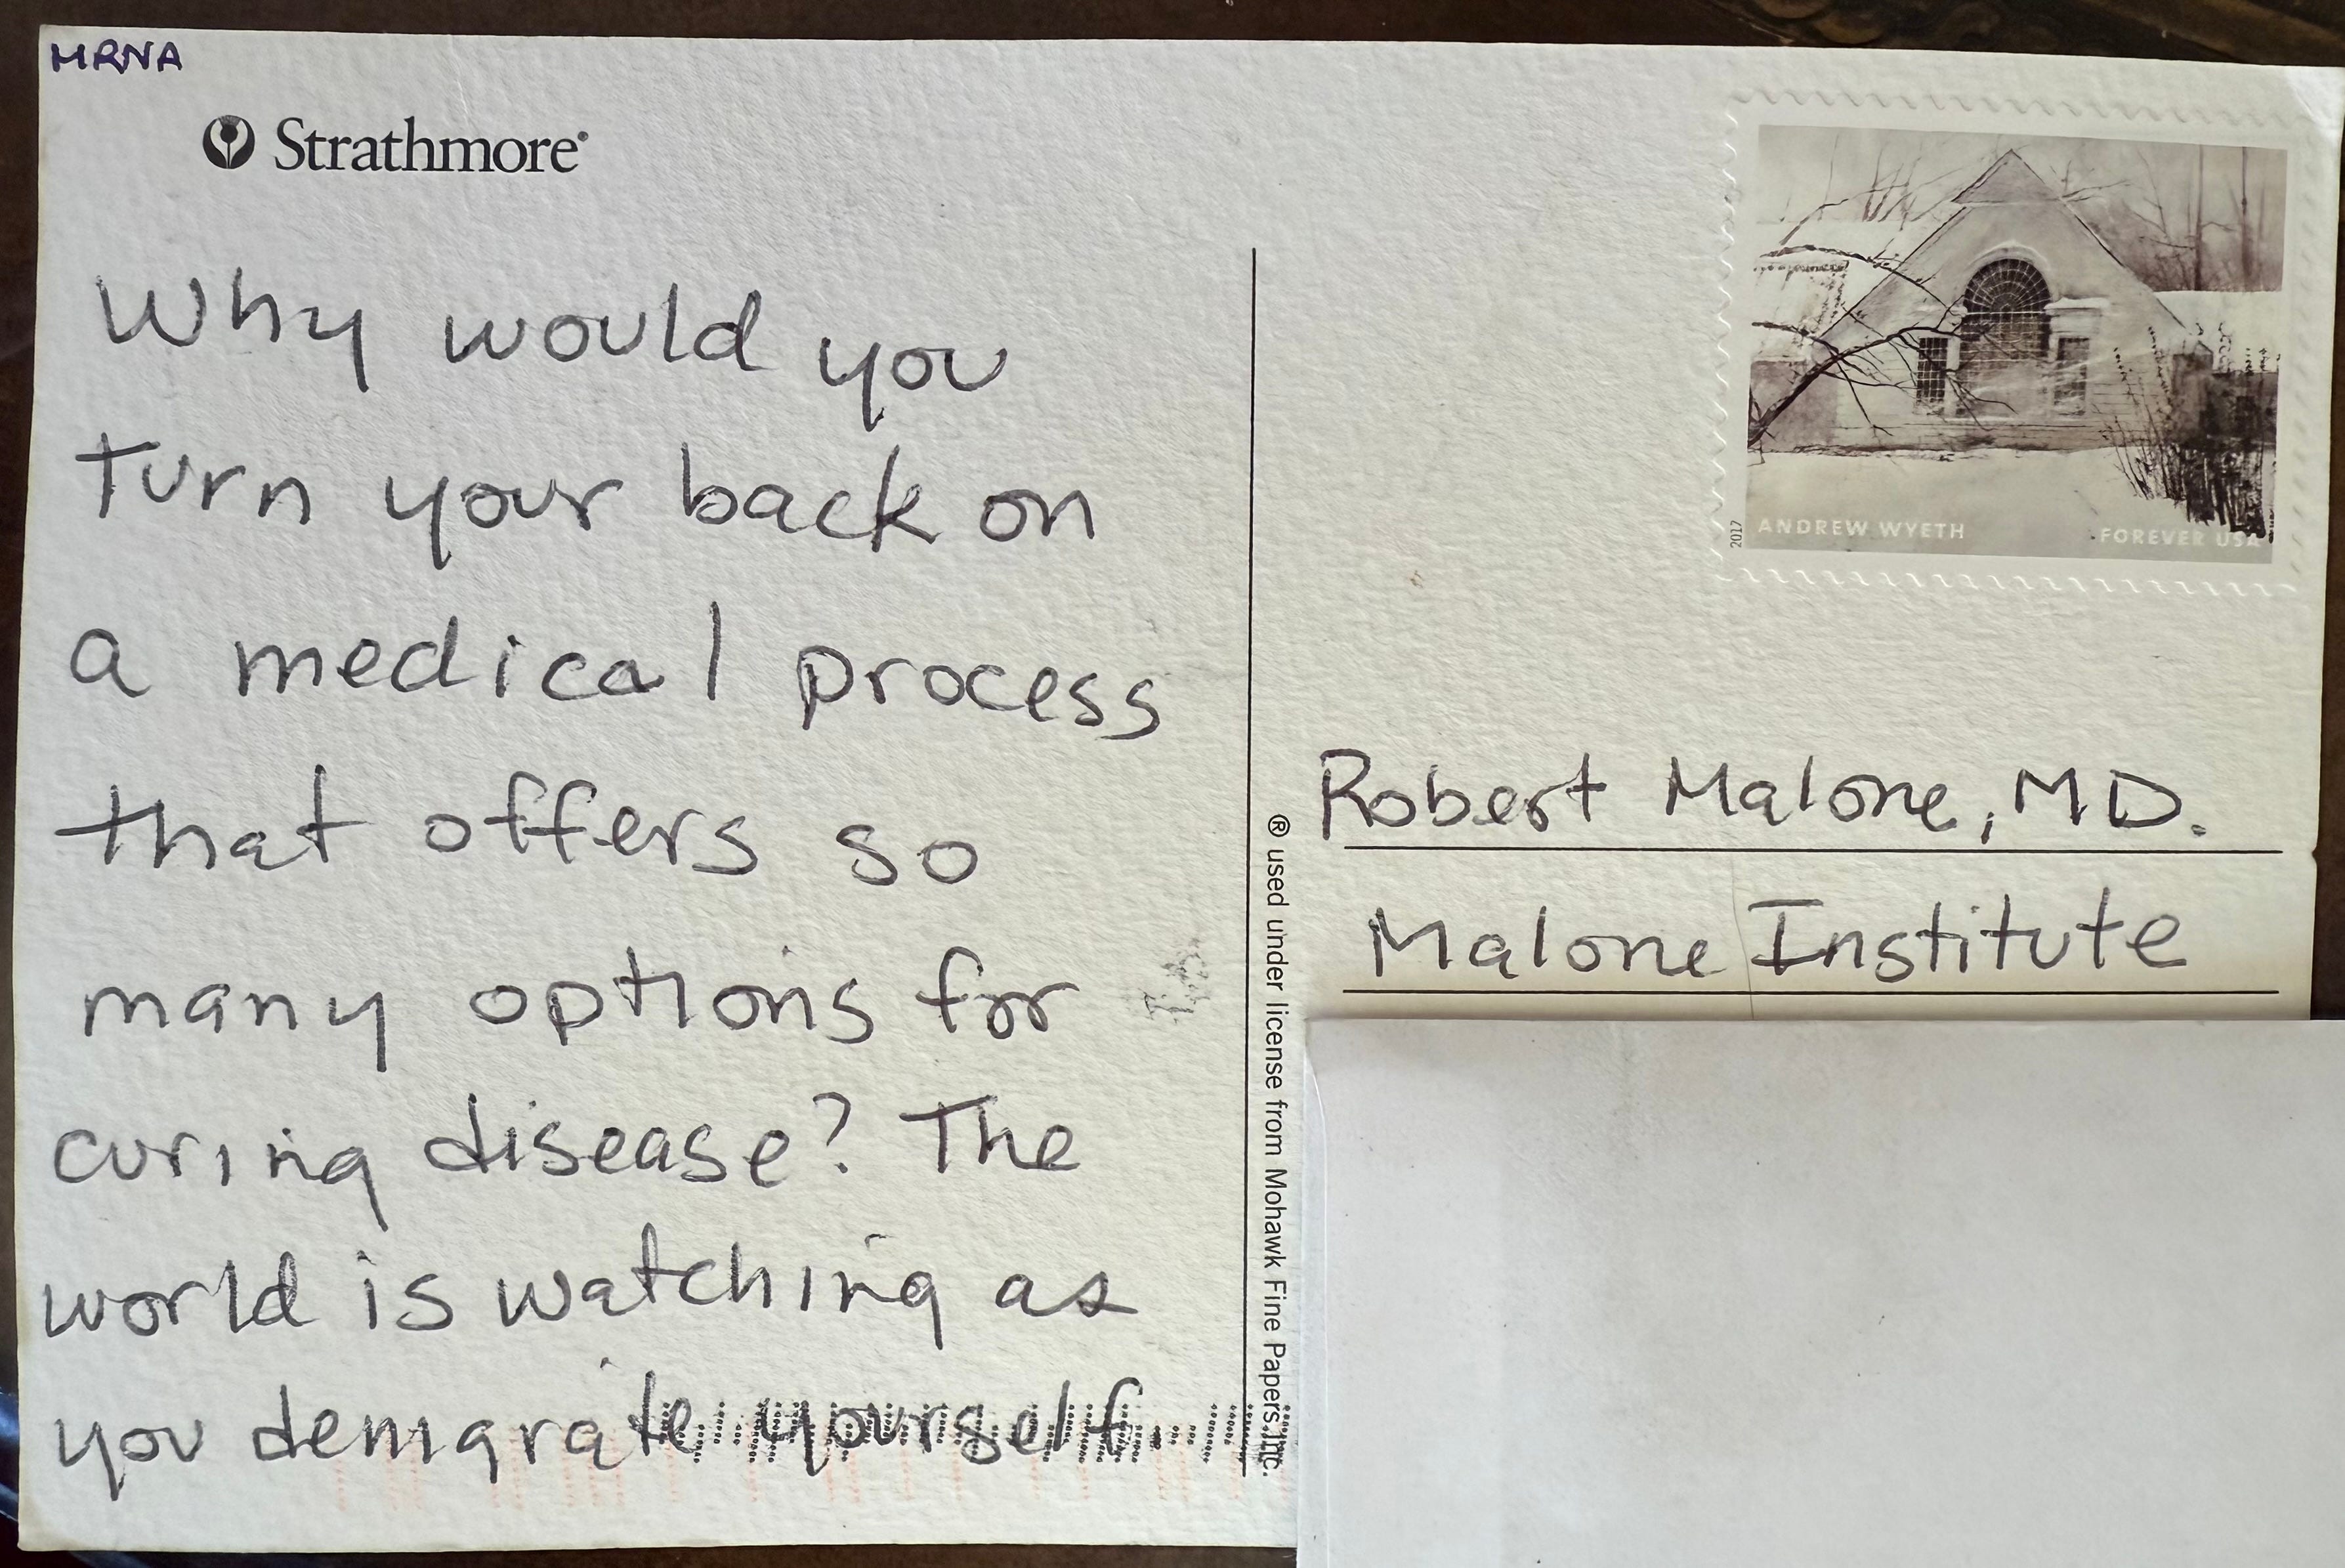 MRNA
Strathmore®
Why would you
turn your back on
a medical process
that offers so
many options for
curing disease? The
world is watching as
you denigrate yourself.
® used under license from Mohawk Fine Papers Inc.
2017
ANDREW WYETH
FOREVER USA
Robert Malone, MD.
Malone Institute